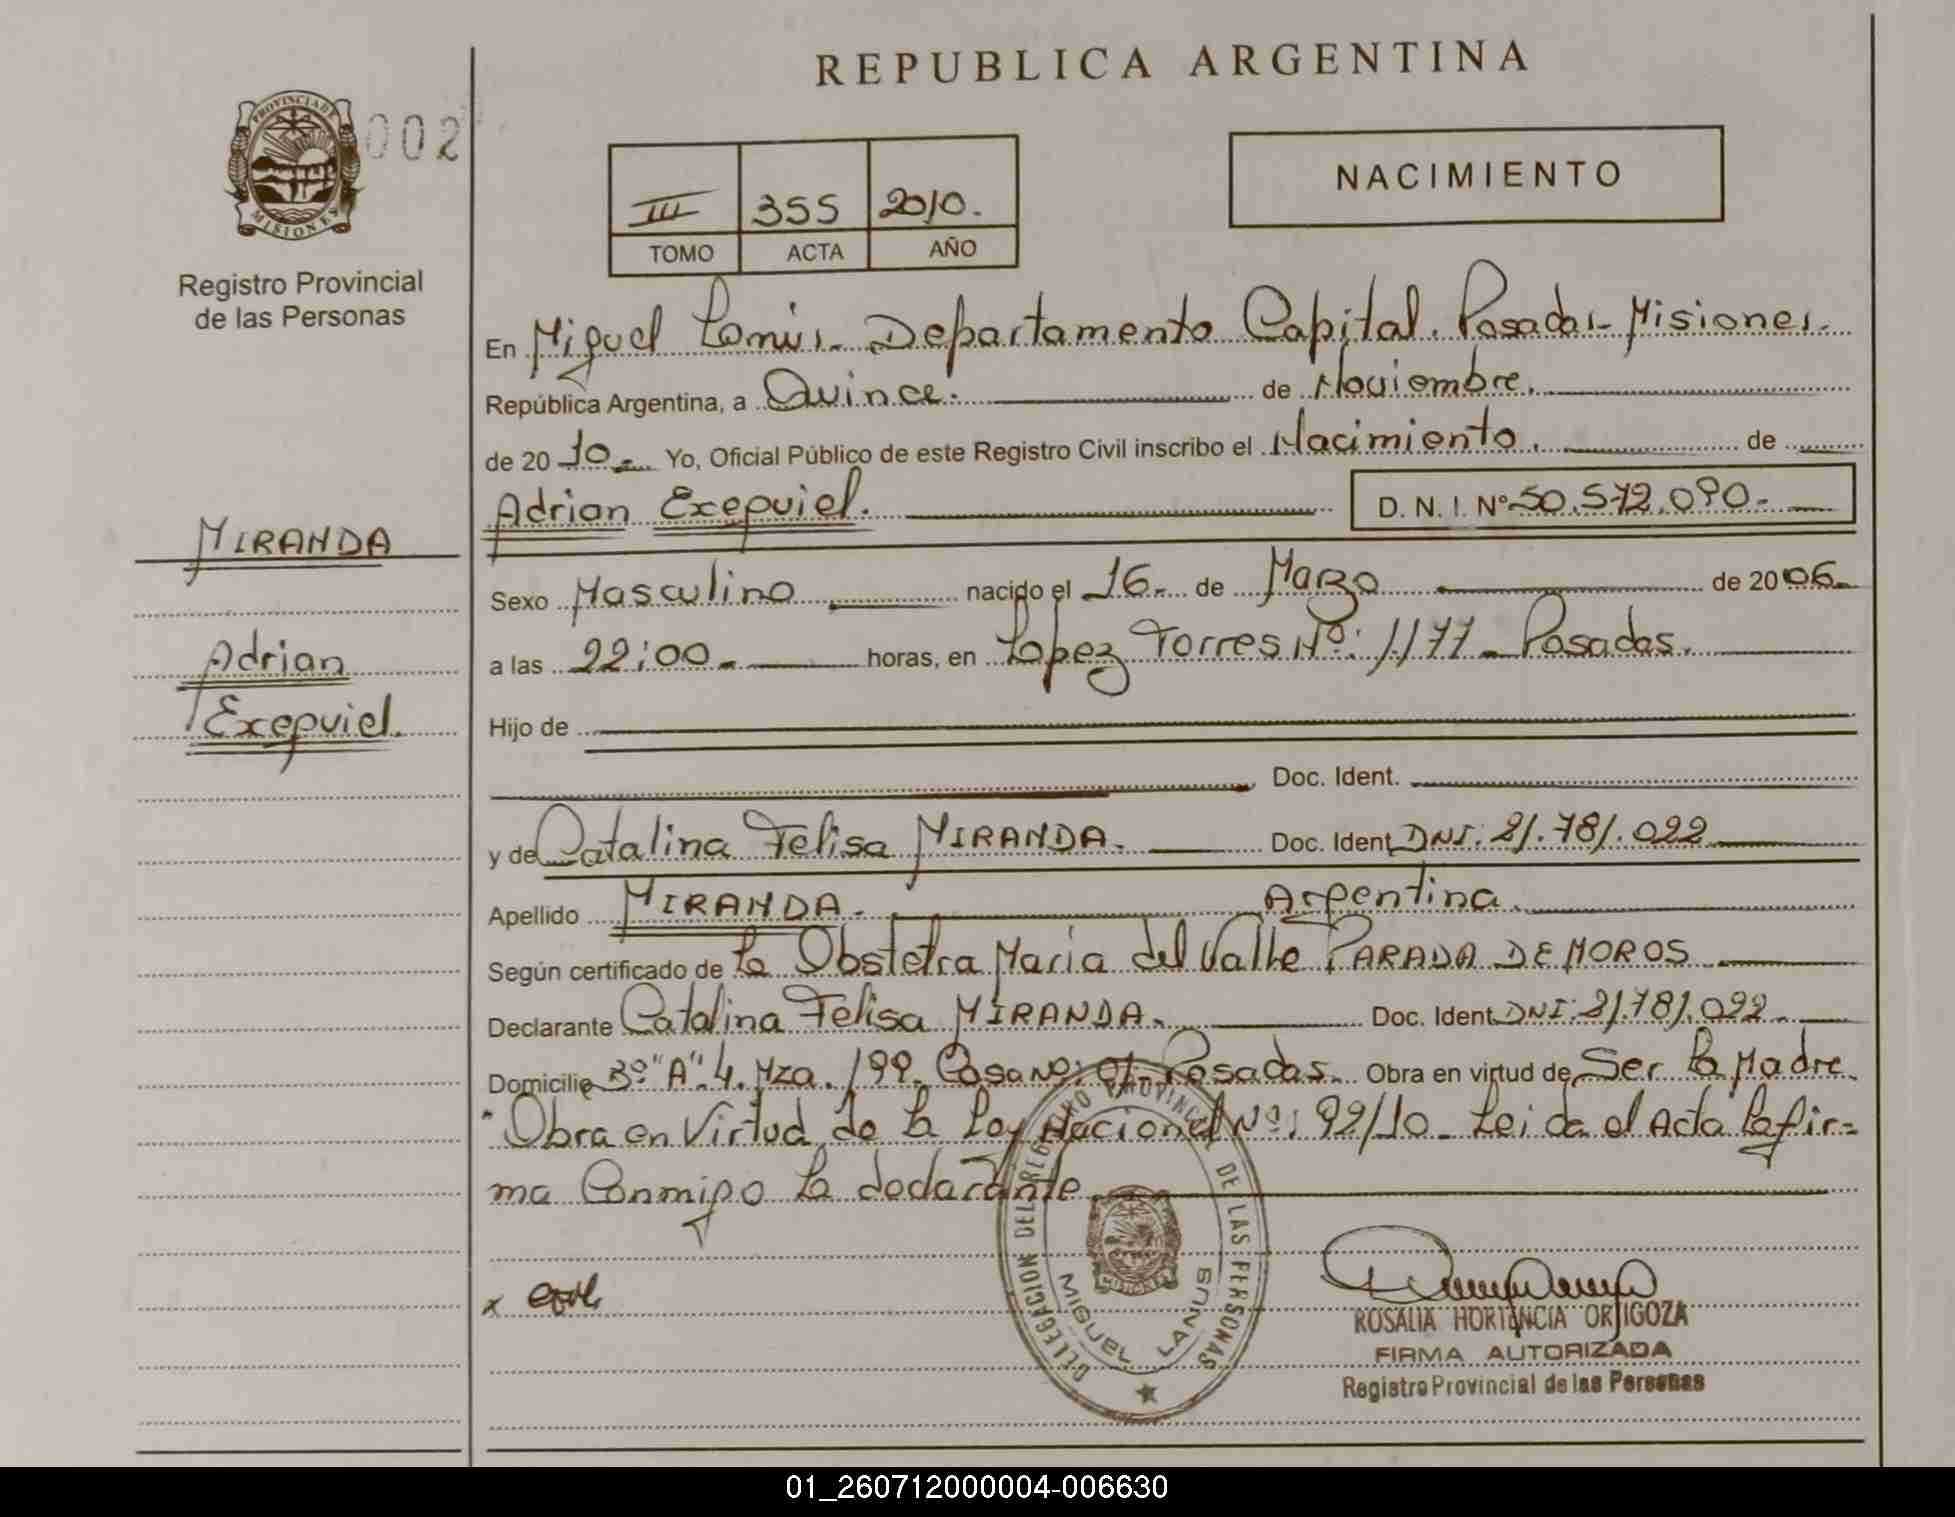 REPUBLICA ARGENTINA
PROVINCIA DE MISIONES
002
Registro Provincial
de las Personas
III 355 2010.
TOMO ACTA AÑO
NACIMIENTO
En Miguel Lanús - Departamento Capital. Posadas - Misiones.
República Argentina, a Quince. de Noviembre.
de 2010 - Yo, Oficial Público de este Registro Civil inscribo el Nacimiento. de
Adrian Exequiel. D. N. I. Nº 50.572.090.-
MIRANDA
Adrian
Exequiel.
Sexo Masculino nacido el 16 - de Marzo de 2006
a las 22:00 - horas, en Lopez Torres Nº: 1177 - Posadas.
Hijo de
Doc. Ident.
y de Catalina Felisa MIRANDA. Doc. Ident. DNI: 21.781.022
Apellido MIRANDA. Argentina.
Según certificado de la Obstetra Maria del Valle PARADA DE MOROS
Declarante Catalina Felisa MIRANDA. Doc. Ident. DNI: 21.781.022
Domicilio 3º "A". 4. Mza. 199. Casa Nº: 01. Posadas. Obra en virtud de Ser la Madre.
"Obra en Virtud de la Ley Nacional Nº: 92/10 - Leida el Acta la fir=
ma Conmigo la declarante.
DELEGACION DEL REGISTRO PROVINCIAL DE LAS PERSONAS
MISIONES
MIGUEL LANUS
x
ROSALIA HORTENCIA ORTIGOZA
FIRMA AUTORIZADA
Registro Provincial de las Personas
01_260712000004-006630